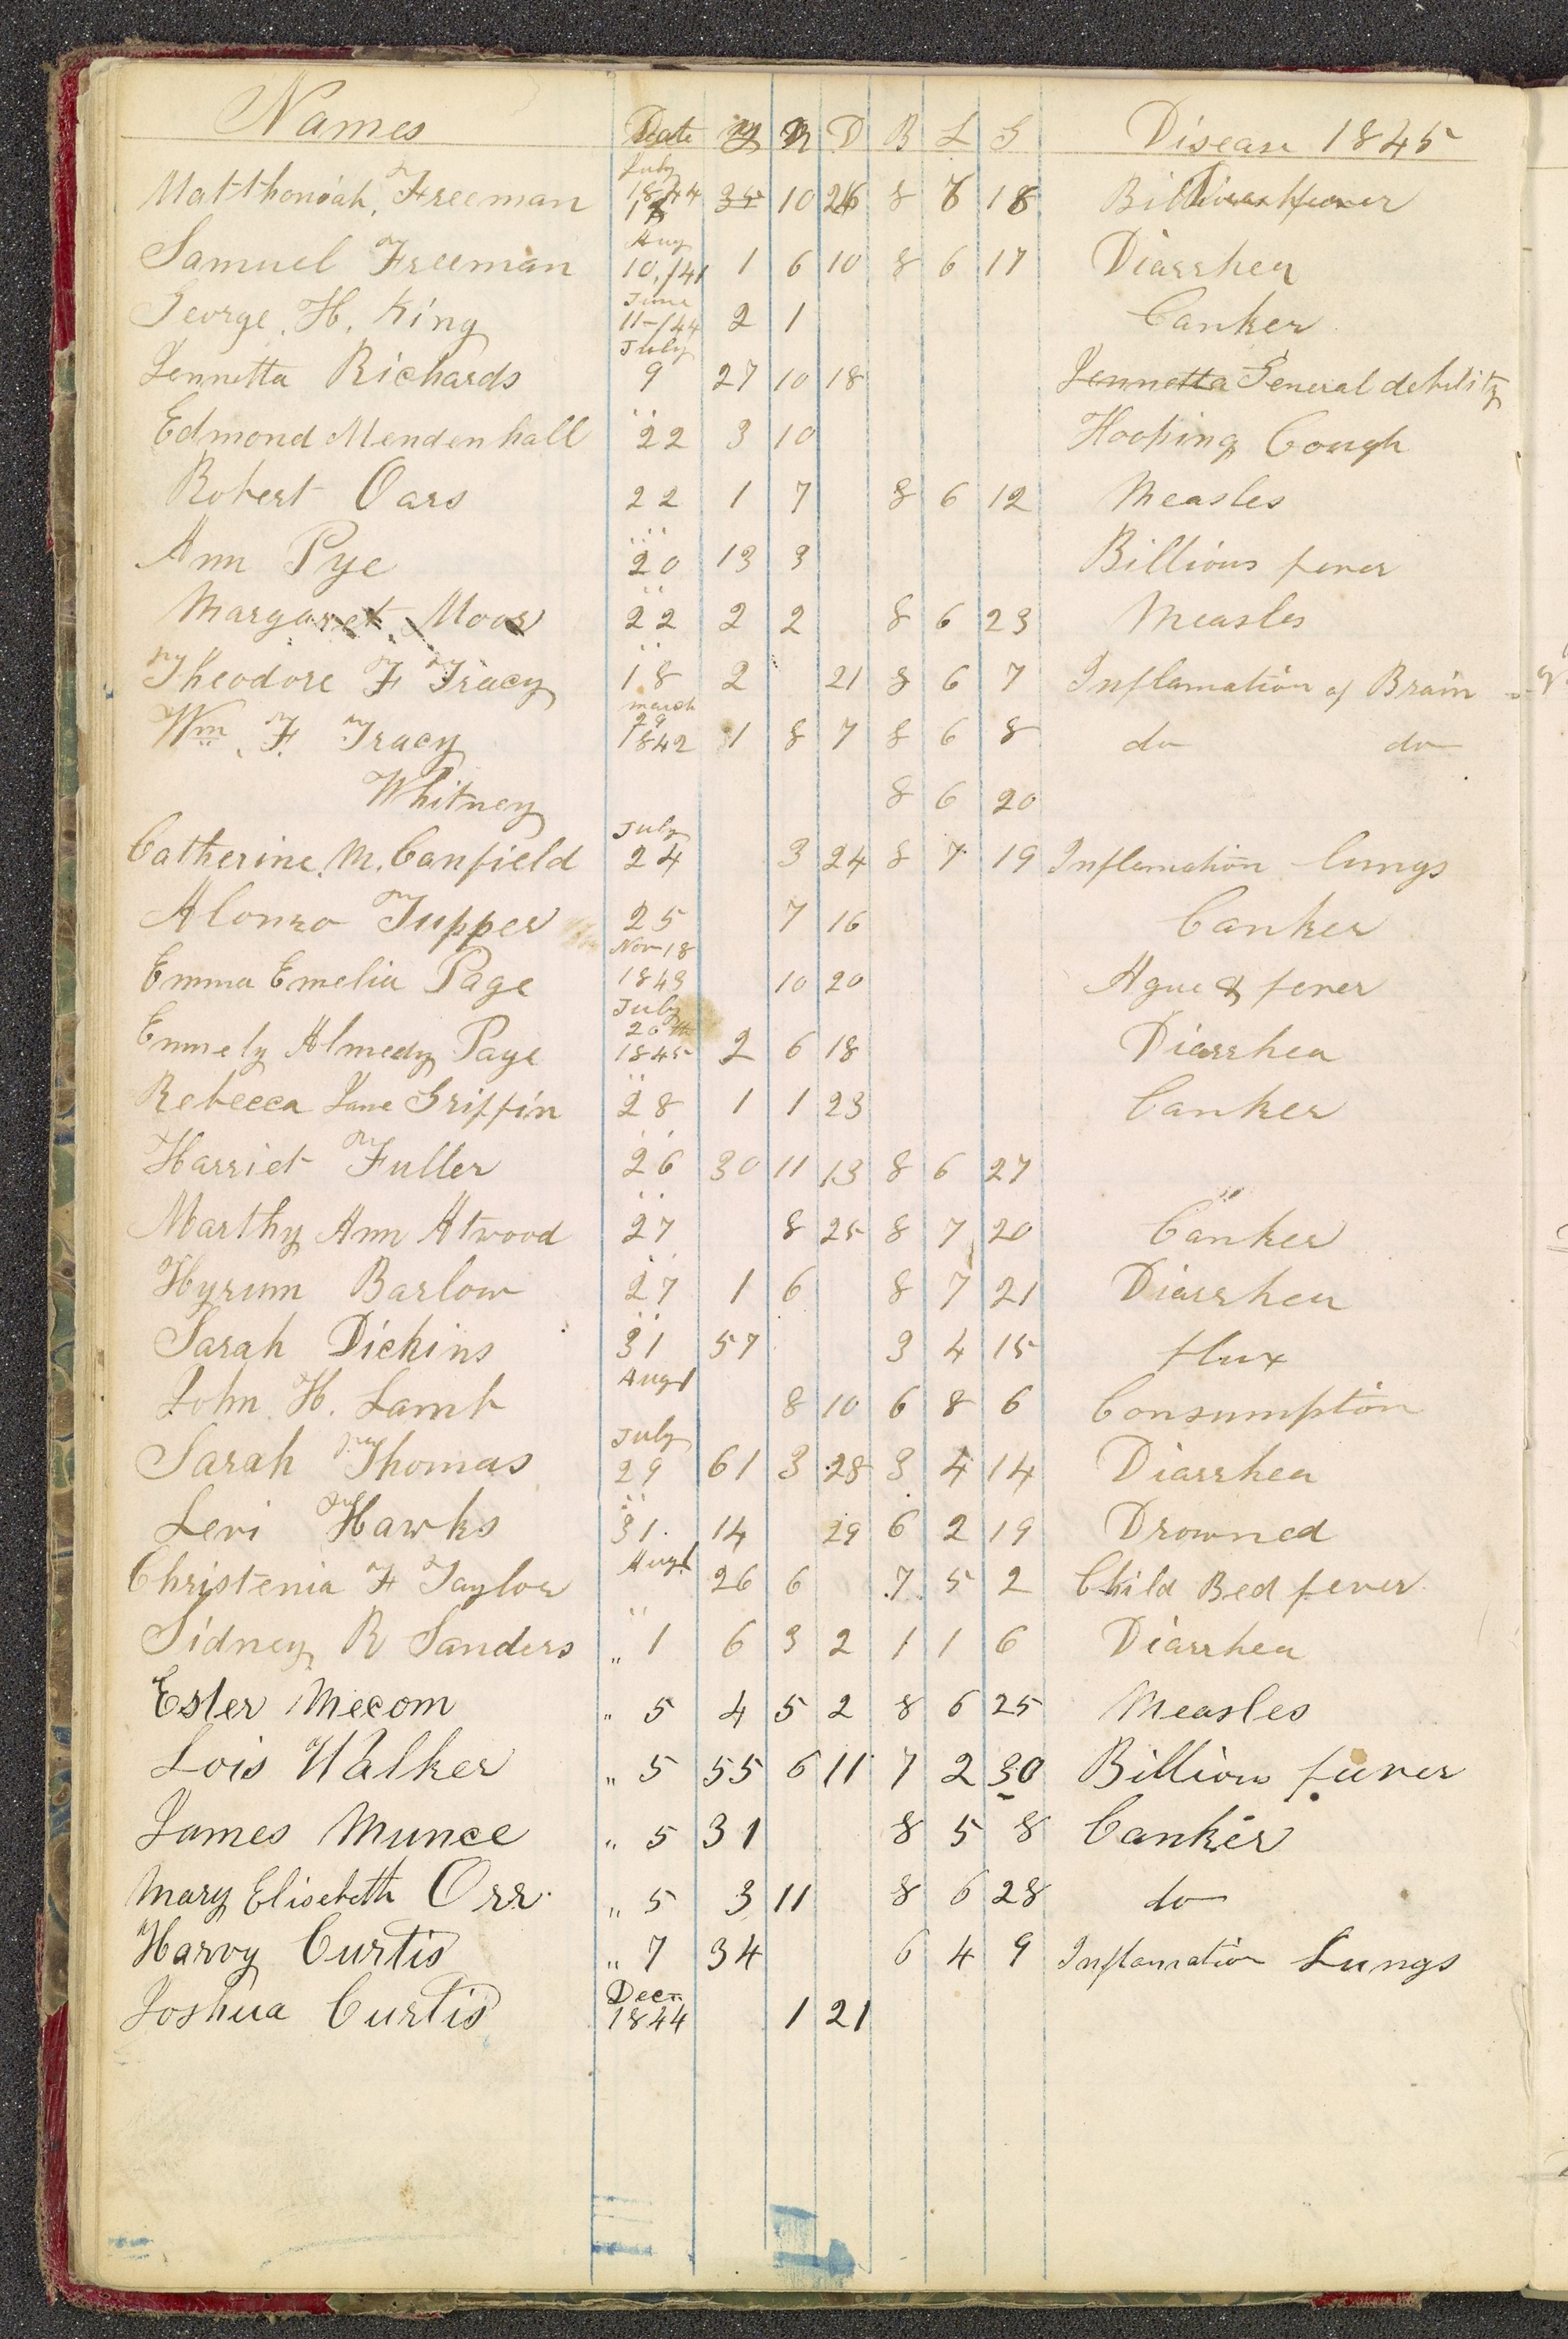 Names Date Y M D B L G Disease 1845
Matthoniah, Freeman July 1844 10 26 8 6 18 Billious fever
Samuel Freeman Aug 10,/41 1 6 10 8 6 17 Diarrhea
George. H. King June 11-/44 2 1 Canker
Jennetta Richards July 9 27 10 18 Jennetta General debility
Edmond Mendenhall " 22 3 10 Hooping Cough
Robert Oars 22 1 7 8 6 12 Measles
Ann Pye " 20 13 3 Billious fever
Margaret Moor " 22 2 2 8 6 23 Measles
Theodore F Tracy " 18 2 21 8 6 7 Inflamation of Brain
Wm. F. Tracy march 29 1842 1 8 7 8 6 8 do do
Whitney 8 6 20
Catherine. M. Canfield July 24 3 24 8 7 19 Inflamation lungs
Alonzo Tupper 25 7 16 Canker
Emma Emelia Page Nov 18 1843 10 20 Ague & fever
Emmely Almedy Page July 26th 1845 2 6 18 Diarrhea
Rebecca Jane Griffin " 28 1 1 23 Canker
Harriet Fuller " 26 30 11 13 8 6 27
Marthy Ann Atwood " 27 8 25 8 7 20 Canker
Hyrum Barlow " 27 1 6 8 7 21 Diarrhea
Sarah Dickins " 31 57 3 4 15 flux
John. H. Lamb Aug 1 8 10 6 8 6 Consumption
Sarah Thomas July 29 61 3 28 3 4 14 Diarrhea
Levi Hawks " 31. 14 29 6 2 19 Drowned
Christenia F Taylor Aug 1 26 6 7 5 2 Child Bed fever
Sidney R Sanders " 1 6 3 2 1 1 6 Diarrhea
Ester Mecom " 5 4 5 2 8 6 25 Measles
Lois Walker " 5 55 6 11 7 2 30 Billious feever
James Munce " 5 31 8 5 8 Canker
Mary Elisebeth Orr. " 5 3 11 8 6 28 do
Harvy Curtis " 7 34 6 4 9 Inflamation Lungs
Joshua Curtis Decr. 1844 1 21